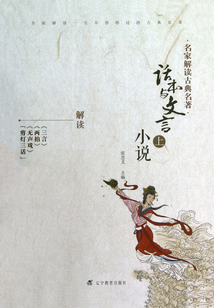 名家解读古典名著
话本与文言
小说
上
解读
《三言》
《两拍》
《无声戏》
“剪灯三话”
主编
辽宁教育出版社